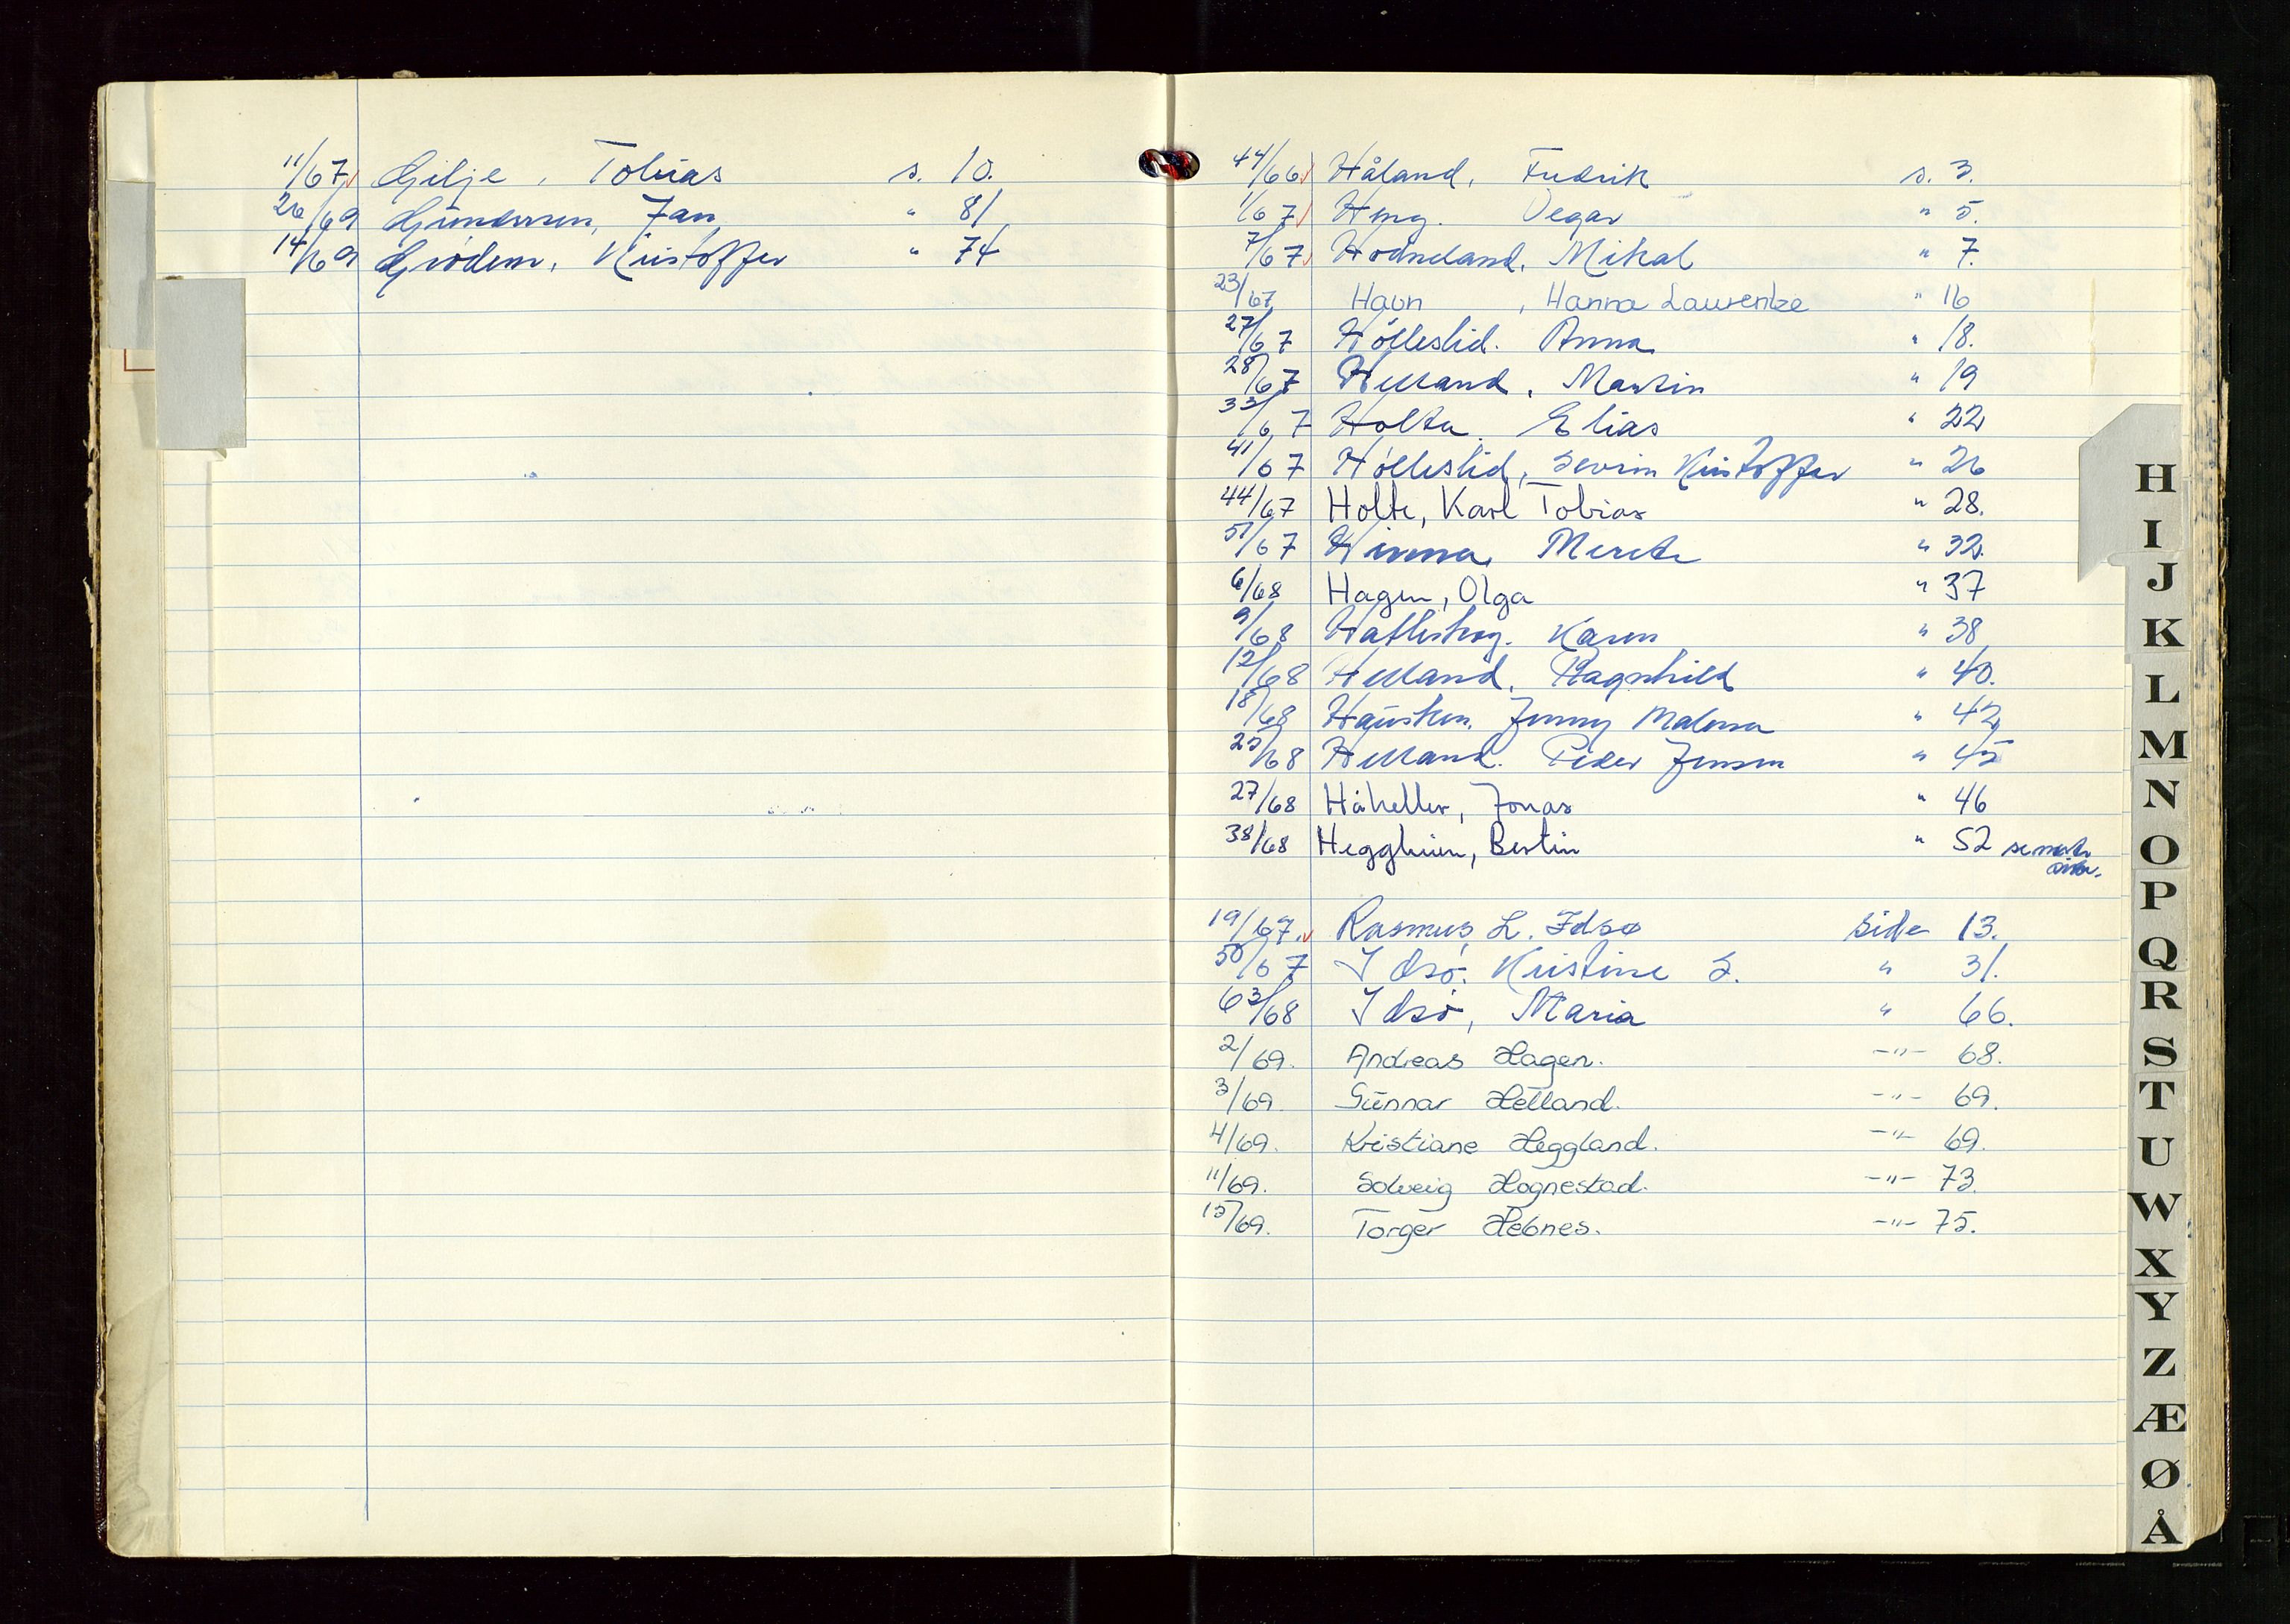 11/67 Gilje, Tobias s. 10.
26/69 Gundersen, Jan " 81
14/69 Grødem, Kristoffer " 74
44/66 Håland, Fredrik s. 3.
1/67 Høeg. Vegar " 5.
7/67 Hodneland, Mikal " 7.
23/67 Havn, Hanna Laurentze " 16
27/67 Hölleslid. Anna " 18.
28/67 Helland, Martin " 19
33/67 Holta. Elias " 22
41/67 Hölleslid, Sevrin Kristoffer " 26
44/67 Holte, Karl Tobias " 28.
51/67 Hinna, Merete " 32.
6/68 Hagen, Olga " 37
9/68 Karen " 38
12/68 Helland, Ragnhild " 40.
18/68 Hausken, Jenny Malena " 42
25/68 Helland. Peder Jensen " 45
27/68 Håheller, Jonas " 46
38/68 Hegghuin, Bertin " 52 se neste side.
19/67. Rasmus L. Idsø side 13.
50/67 Idsø. Kristine S. " 31.
63/68 Idsø, Maria " 66.
2/69. Andreas Hagen. -"- 68.
3/69 Gunnar Hetland. -"- 69.
4/69. Kristiane Heggland. -"- 69.
11/69. Solveig Hognestad. -"- 73.
15/69. Torger Hebnes. -"- 75.
H
I
J
K
L
M
N
O
P
Q
R
S
T
U
W
X
Y
Z
Æ
Ø
Å